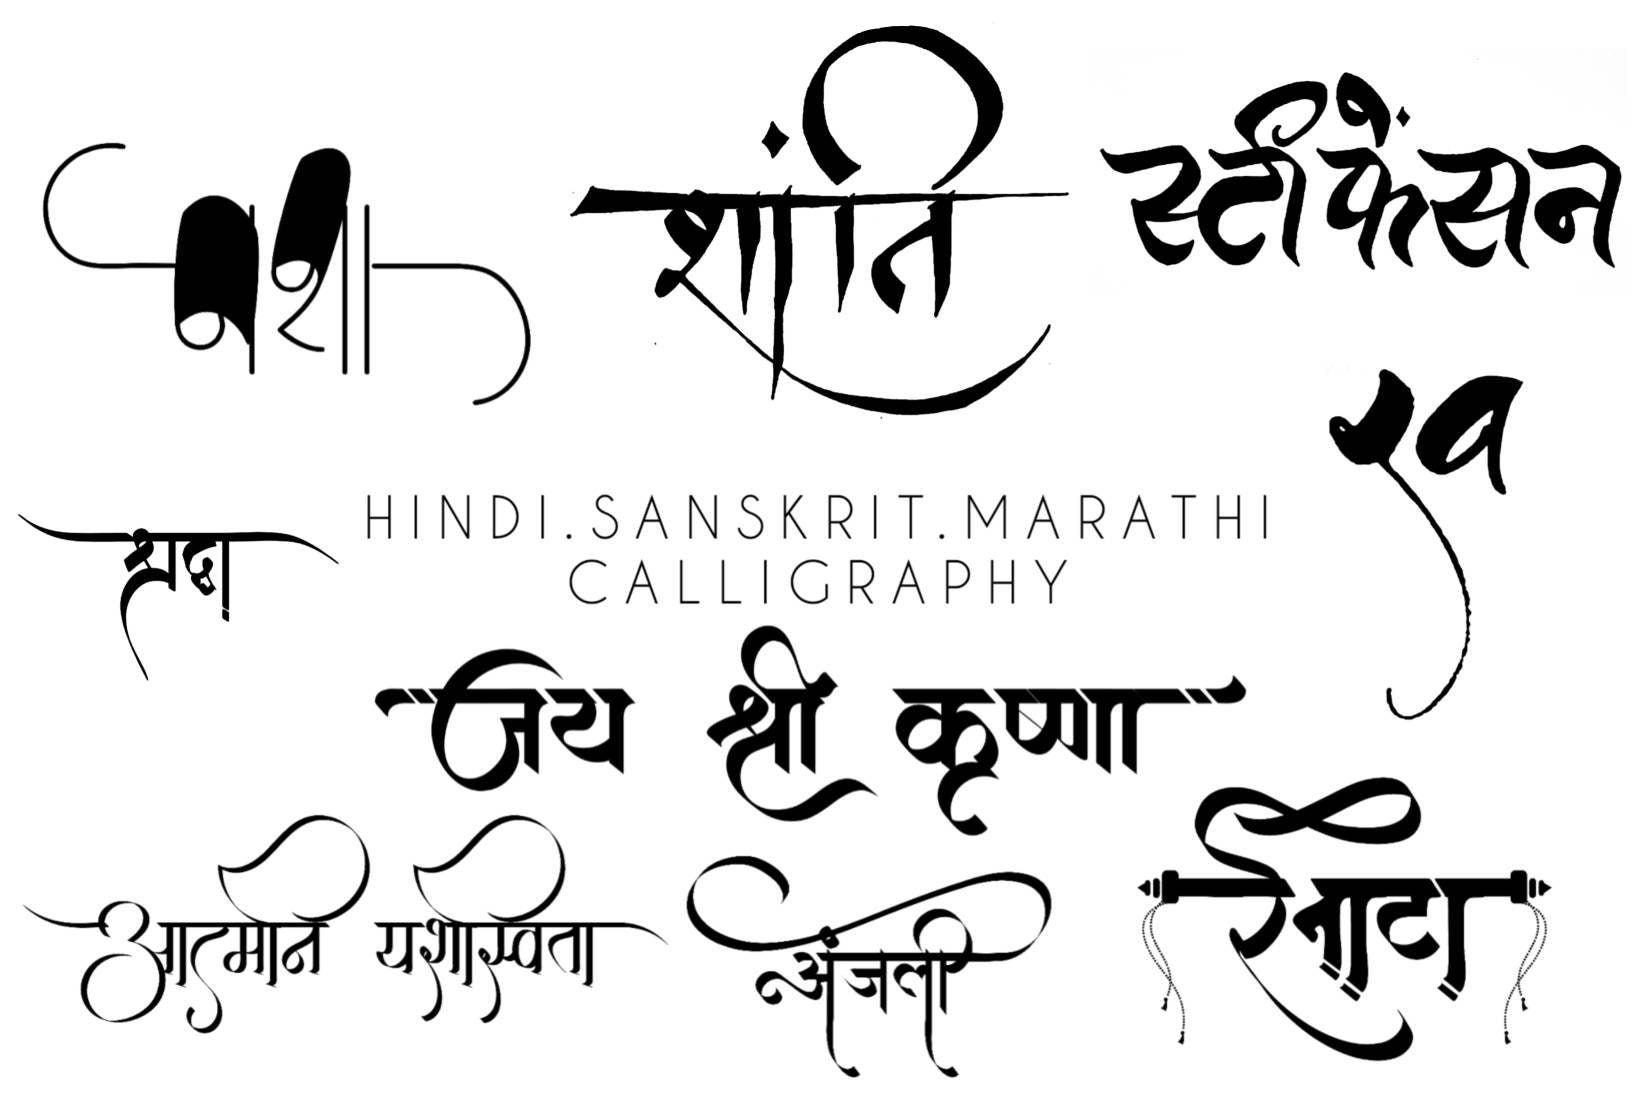 नशा
शांति
स्टीफेंसन
रव
HINDI.SANSKRIT.MARATHI
CALLIGRAPHY
श्रद्धा
जय श्री कृष्णा
आत्मानि यशस्विता
अंजली